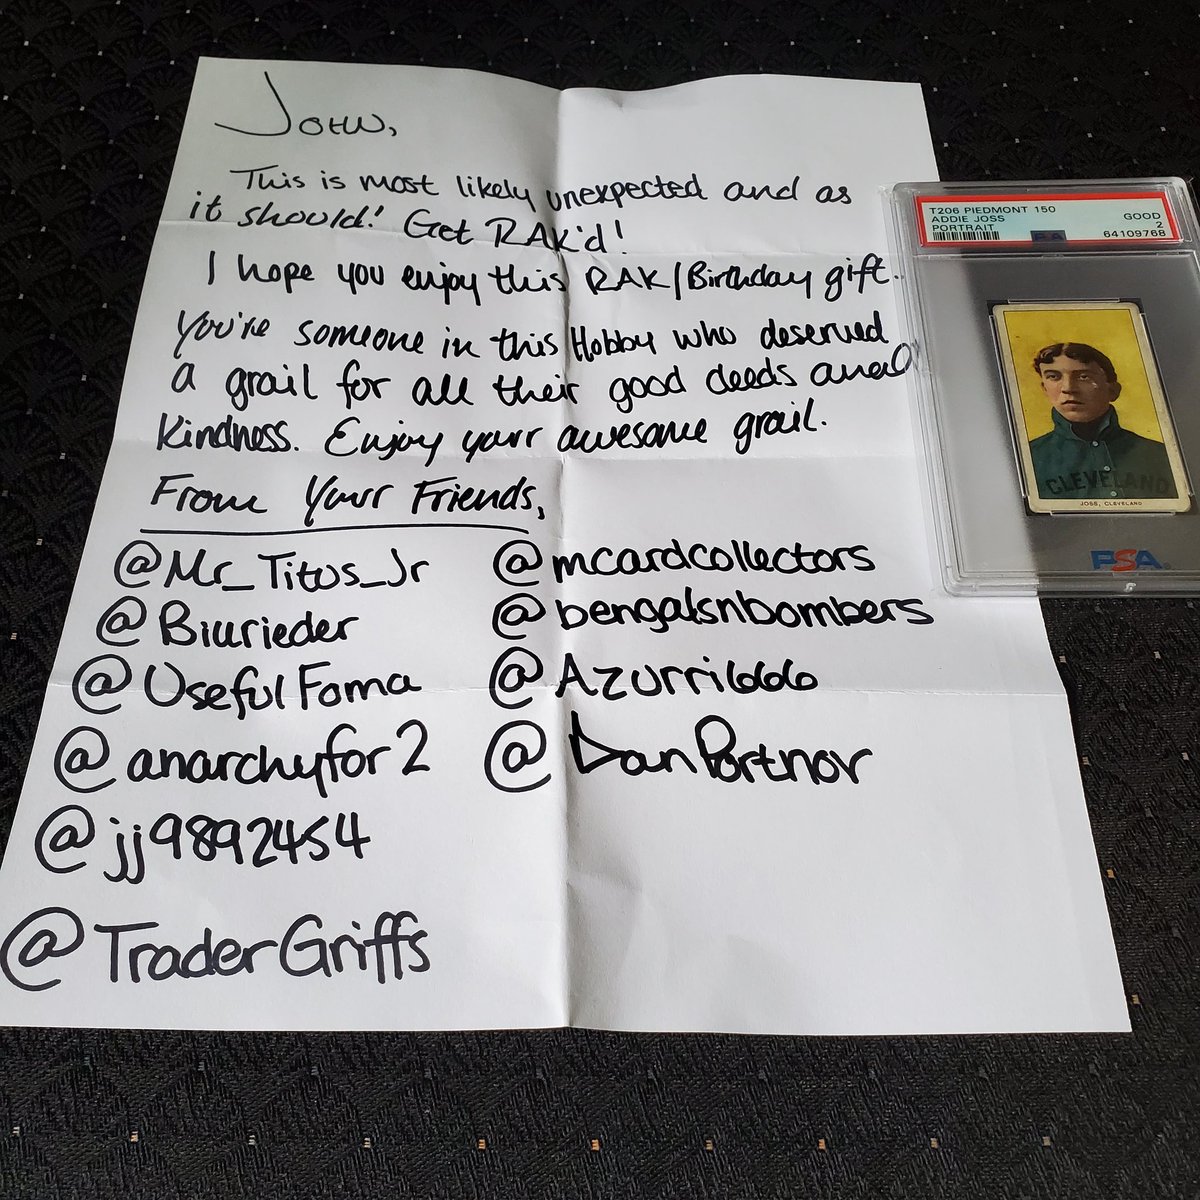 John,
This is most likely unexpected and as
it should! Get RAK'd!
I hope you enjoy this RAK/Birthday gift.
You're someone in this Hobby who deserved
a grail for all their good deeds and
Kindness. Enjoy your awesome grail.
From Your Friends,
@Mr_Titus_Jr
@Biurieder
@UsefulFoma
@anarchyfor2
@jj9892454
@TraderGriffs
@mcardcollectors
@bengalsnbombers
@Azurri666
@DanPortnor
T206 PIEDMONT 150
ADDIE JOSS GOOD
PORTRAIT 2
PSA 64109768
CLEVELAND
JOSS, CLEVELAND
PSA